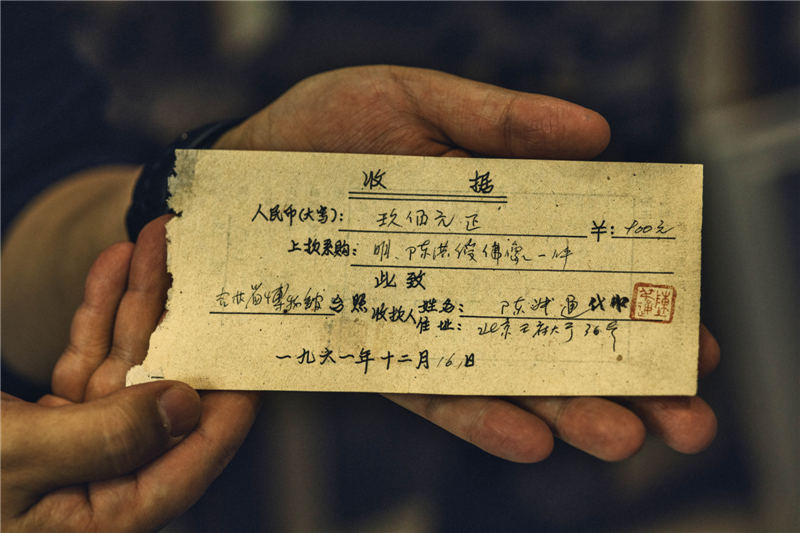 收 据
人民币(大写): 玖佰元正 ¥: 900元
上款系购: 明、陈洪绶佛像一件
此致
吉林省博物馆台照
收款人 姓名: 陈 通代
住址: 北京王府大 36号
一九六一年十二月16日